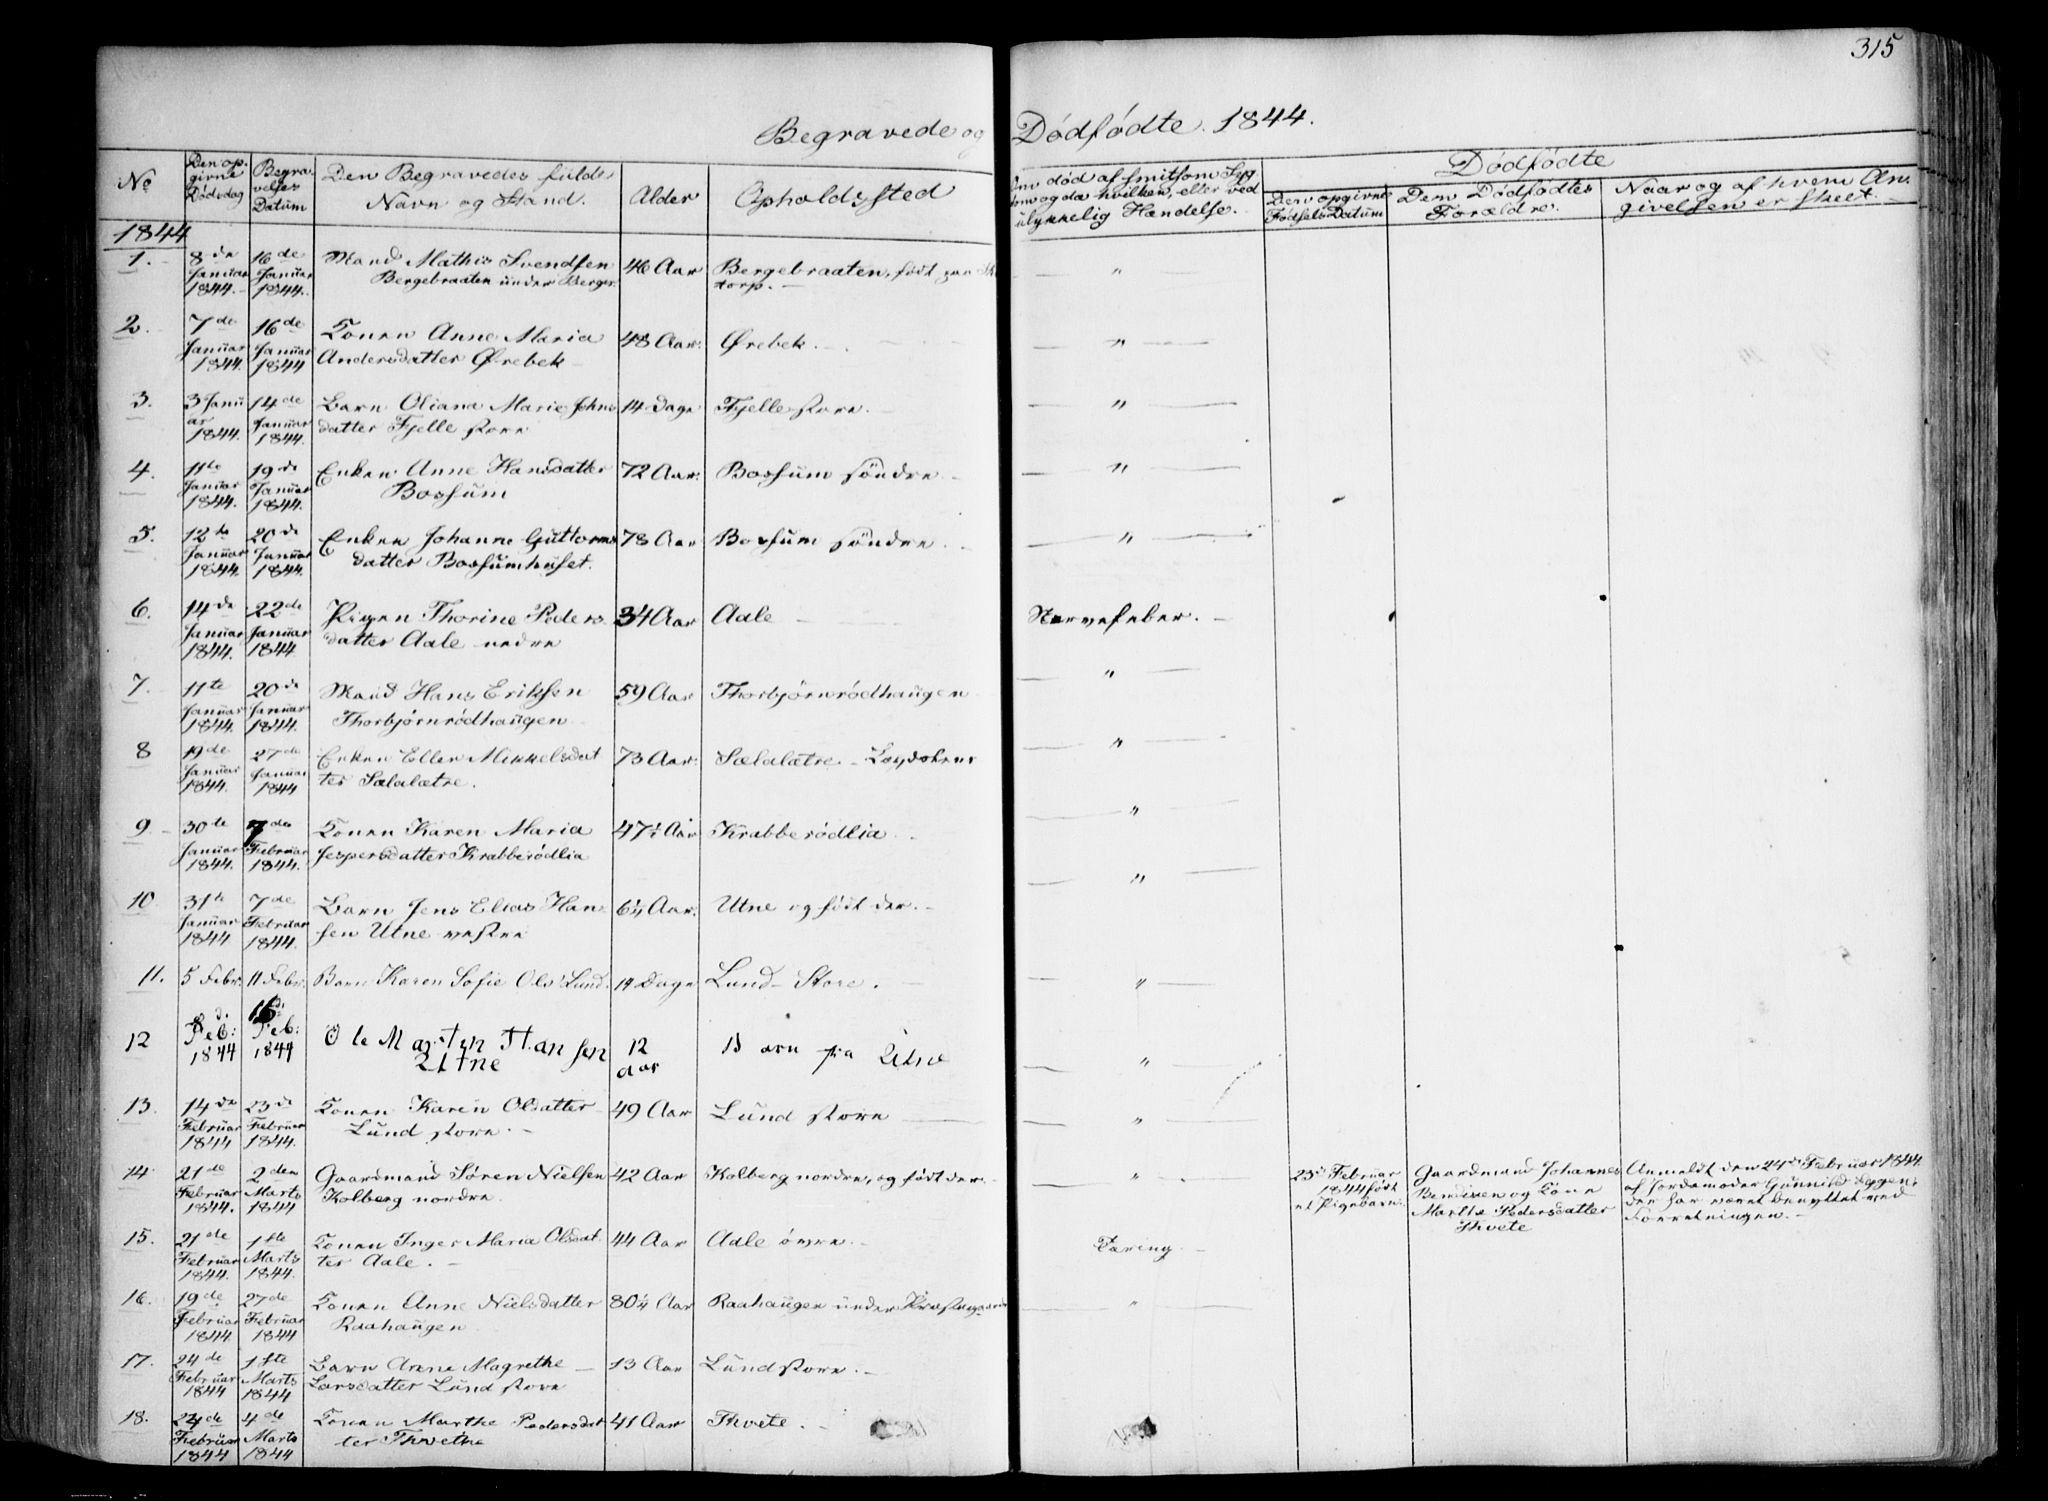 315
Begravede og Dödfödte. 1844.
No
Den op-
givne
Dödsdag
Begra-
velses
Datum
Den Begravedes fulde
Navn og Stand.
Alder
Opholdssted
Om död af smitsom Syg-
dom og da hvilken, eller ved
ulykkelig Hændelse.
Dödfödte
Den opgivne
Födsels Datum
Dem Dödfödtes
Forældre.
Naar og af hvem An-
givelsen er skeet.
1844
1. 8de Januar 1844. 16de Januar 1844. Mand Mathis Svendsen 46 Aar Bergebraaten, födt paa
Bergebraaten under Berger torp. "
2. 7de Januar 1844. 16de Januar 1844 Konen Anne Maria 48 Aar. Ørebek. "
Andersdatter Ørebek
3. 3 Januar 1844. 14de Januar 1844. Barn Oliana Marie Johns 14 Dage Fjelle store. "
datter Fjelle store
4. 11te Januar 1844. 19de Januar 1844. Enken Anne Hansdatter 72 Aar. Bossum söndre "
Bossum
5. 12te Januar 1844. 20de Januar 1844. Enken Johanne Guttorms 78 Aar Bossum söndre. "
datter Bossumhuset.
6. 14de Januar 1844. 22de Januar 1844 Pigen Thorine Peders 34 Aar Aale Nervefeber.
datter Aale nedre
7. 11te Januar 1844. 20de Januar 1844. Mand Hans Eriksen 59 Aar Thorbjörnrödhaugen "
Thorbjörnrödhaugen
8 19de Januar 1844. 27de Januar 1844 Enken Ellen Mikkelsdat 73 Aar. Sælalætre - "
ter Sælalætre.
9 30te Januar 1844. 7de Februar 1844. Konen Karen Maria 47½ Aar Krabberödlia "
Jespersdatter Krabberödlia
10 31te Januar 1844 7de Februar 1844. Barn Jens Elias Han- 6¼ Aar. Utne og födt der. "
sen Utne vestre
11. 5 Febr. 11 Febr. Barn Karen Sofie Ols. Lund. 14 Dage Lund Store. "
12 8d. Feb: 1844 16d. Feb: 1844 Ole Martin Hansen 12 aar Barn fra Utne "
Utne
13. 14de Februar 1844 23de Februar 1844. Konen Karen Olsdatter 49 Aar Lund store "
Lund store.
14 21de Februar 1844. 2den Marts 1844 Gaardmand Sören Nielsen 42 Aar Kolberg nordre, og födt der. "
Kolberg nordre.
23de Februar
1844 födt
et Pigebarn.
Gaardmand Johannes
Bendixen og Kone
Marthe Pedersdatter
Thvete
Anmeldt den 24de Februar 1844.
af Jordemoder Gunnild
der har været benyttet ved
Forretningen.
15. 21de Februar 1844. 1ste Marts 1844. Konen Inger Maria Olsdat 44 Aar Aale övre. Tæring.
ter Aale.
16. 19de Februar 1844 27de Februar 1844 Konen Anne Nielsdatter 80¼ Aar Raahaugen under Præstegaarden "
Raahaugen
17. 24de Februar 1844 1ste Marts 1844 Barn Anne Magrethe 13 Aar Lund store.
Larsdatter Lund store
18. 24de Februar 1844 4de Marts 1844 Konen Marthe Pedersdat 41 Aar Thvete.
ter Thvethe